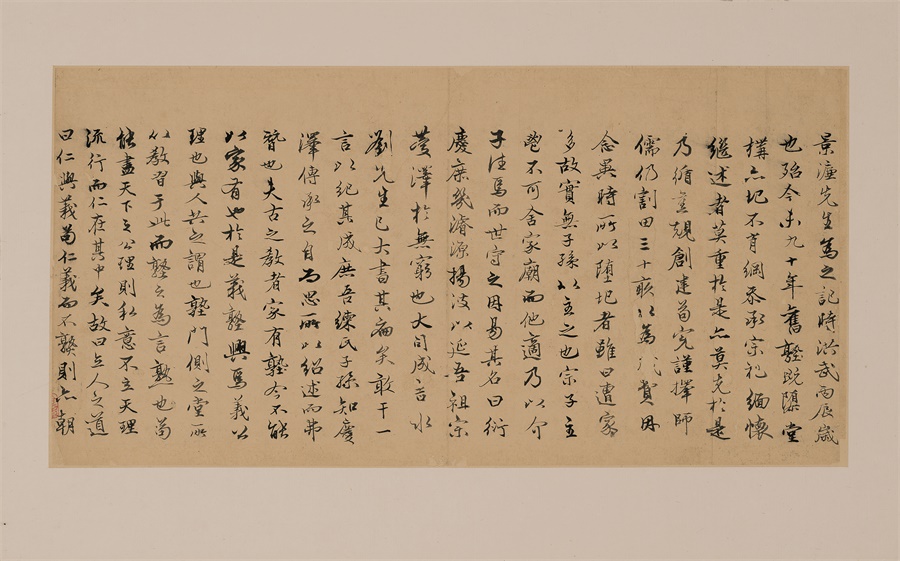 景濂先生為之記時洪武丙辰歲
也殆今未九十年舊塾既隳堂
構亦圮不肖綱忝承宗祀緬懷
繼述者莫重於是亦莫克於是
乃循舊規創建苟完謹擇師
儒仍割田三十畝以為之貲因
念異時所以墮圮者雖曰遭家
多故實無子孫以主之也宗子主
鬯不可舍家廟而他適乃以介
子法焉而世守之因易其名曰衍
慶庶幾濬源揚波以延吾祖宗
慶澤於無窮也大同成言水
劉先生已大書其扁矣敢干一
言以紀其成庶吾練氏子孫知慶
澤傳承之自而思所以紹述而弗
替也夫古之教者家有塾今不能
以家有也於是義塾興焉義以
理也與人共之謂也塾門側之堂所
以教習于此而塾之為言熟也苟
能盡天下之公理則私意不立天理
流行而仁在其中矣故曰立人之道
曰仁與義苟仁義而不熟則亦